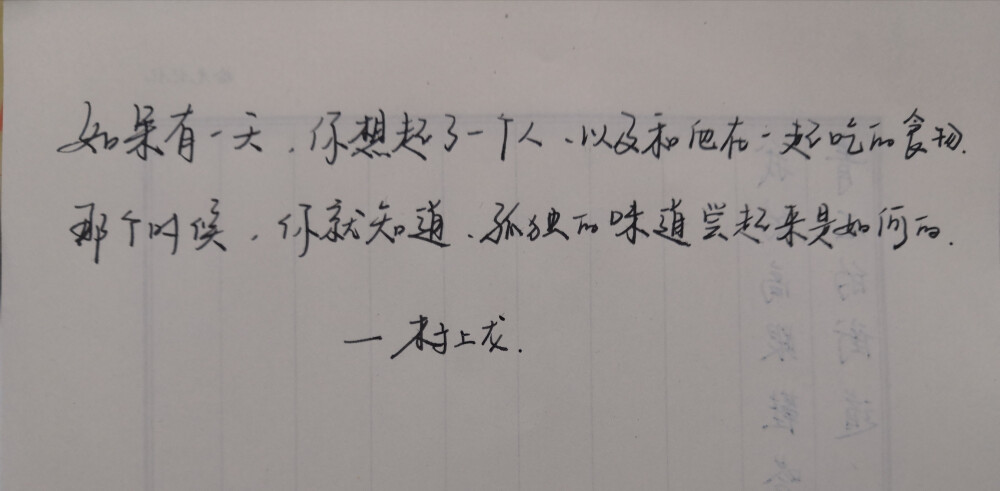 如果有一天，你想起了一个人、以及和他在一起吃的食物.
那个时候，你就知道、孤独的味道尝起来是如何的.
— 村上龙.